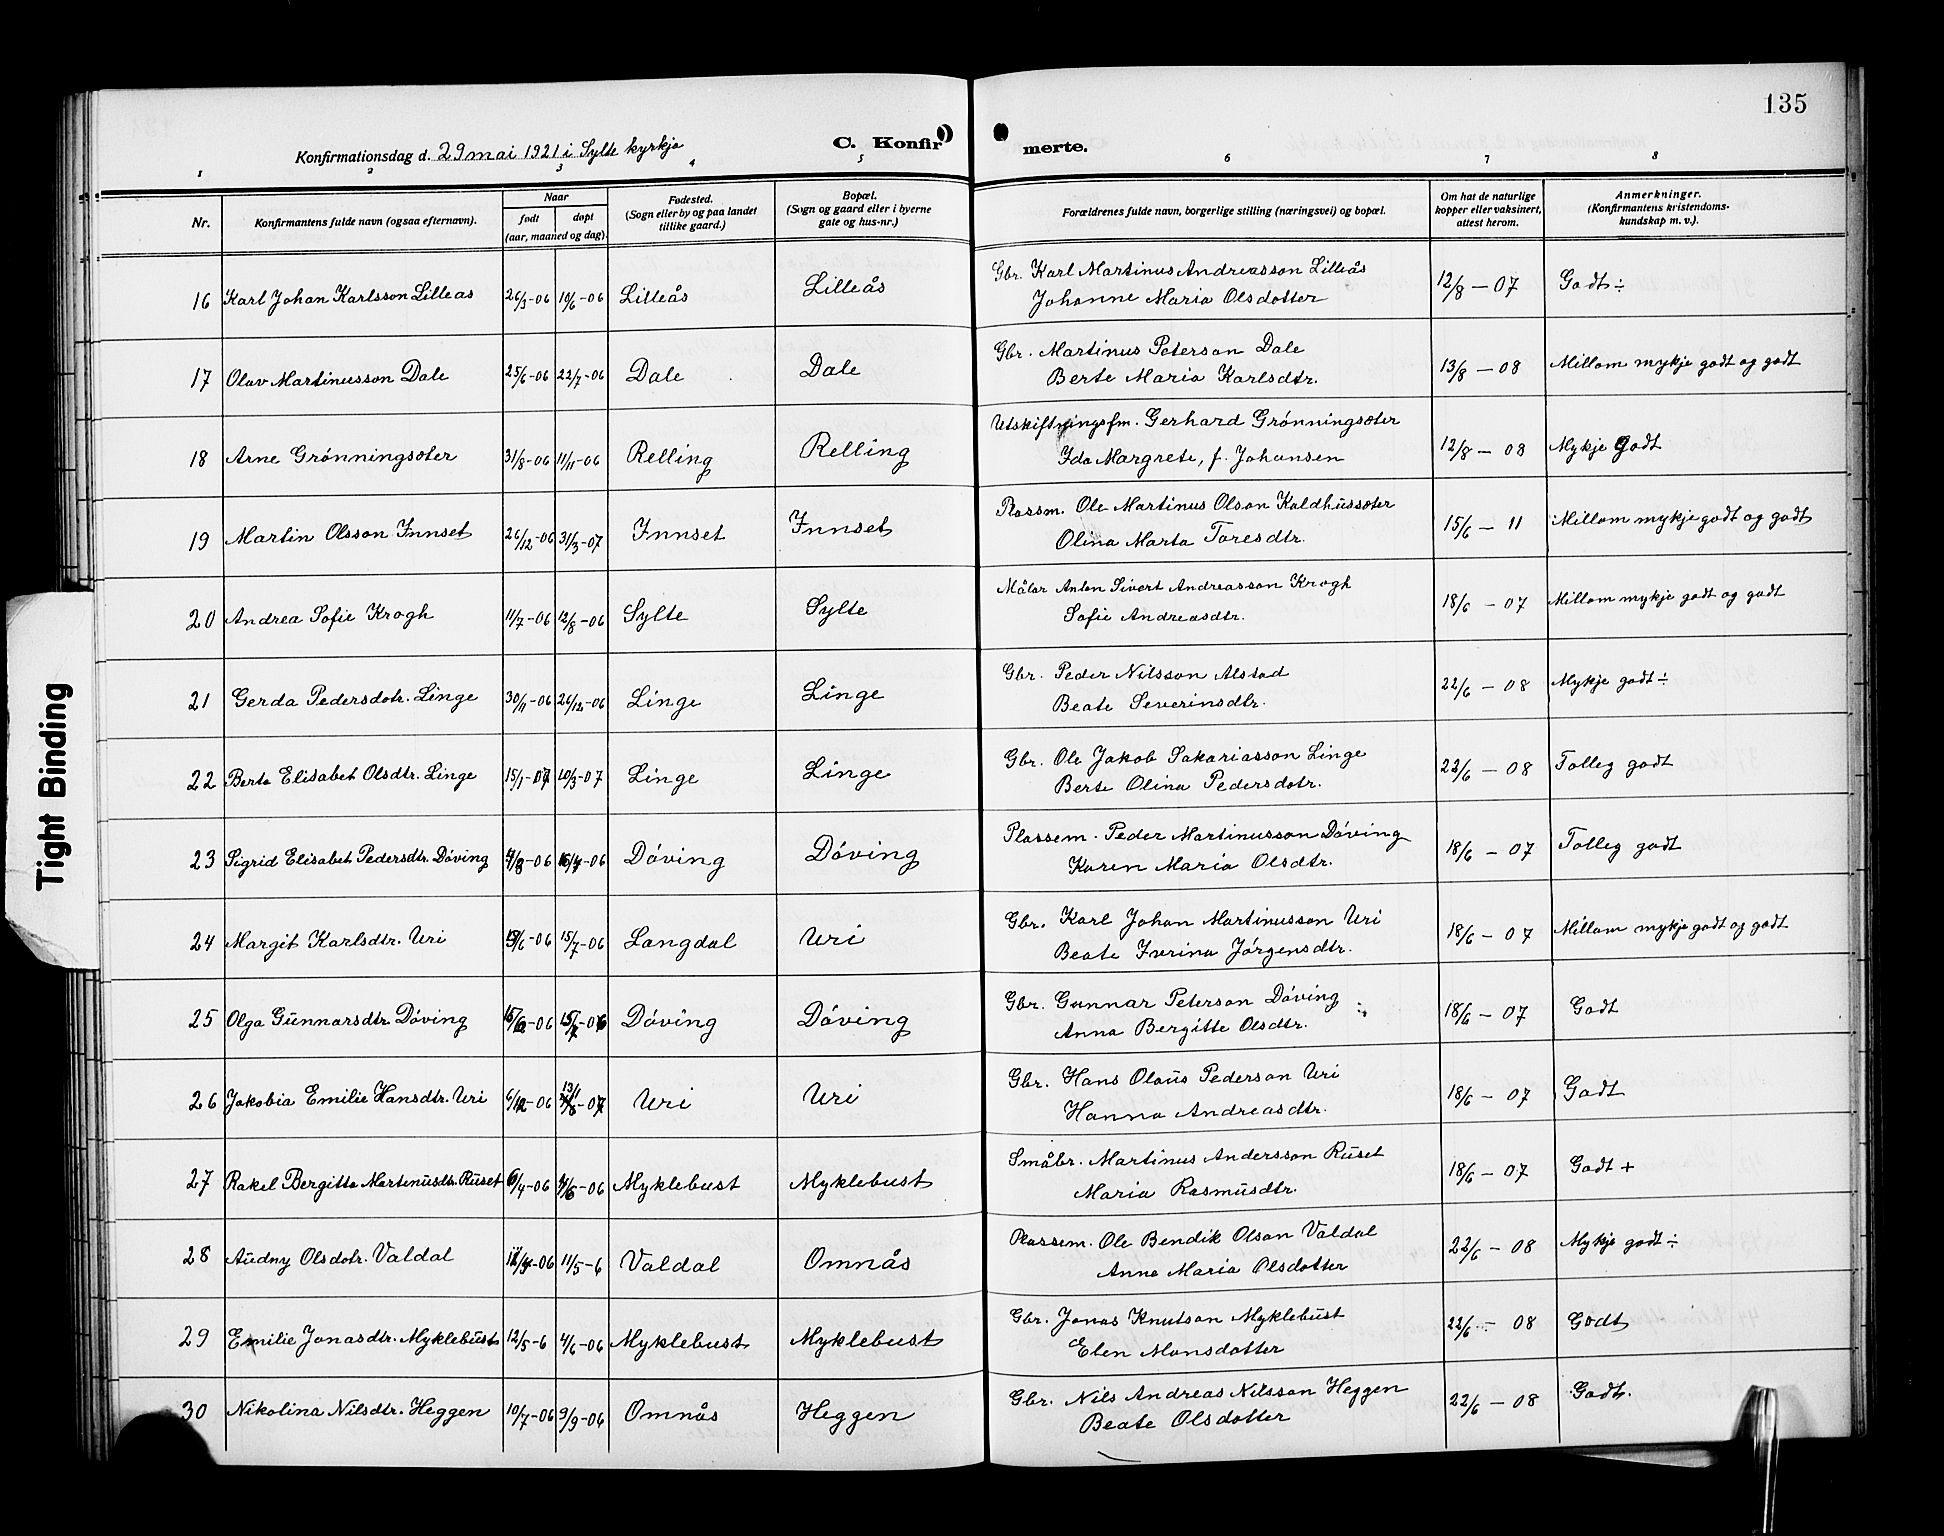 135
Konfirmationsdag d. 29 mai 1921 i Sylte kyrkje
C. Konfirmerte.
1 2 3 4 5 6 7 8
Nr. Konfirmantens fulde navn (ogsaa efternavn). Naar født døpt (aar, maaned og dag). Fødested. (Sogn eller by og paa landet tillike gaard.) Bopæl. (Sogn og gaard eller i byerne gate og hus-nr.) Forældrenes fulde navn, borgerlige stilling (næringsvei) og bopæl. Om hat de naturlige kopper eller vaksinert, attest herom. Anmerkninger. (Konfirmantens kristendomskundskap m. v.).
16 Karl Johan Karlsson Lilleås 26/3-06 10/6-06 Lilleås Lilleås Gbr. Karl Martinus Andreasson Lilleås 12/8-07 Godt ÷
Johanne Maria Olsdotter
17 Olav Martinusson Dale 25/6-06 22/7-06 Dale Dale Gbr. Martinus Peterson Dale 13/8-08 Millom mykje godt og godt
Berte Maria Karlsdtr.
18 Arne Grønningsæter 31/8-06 11/11-06 Relling Relling Utskiftningsfm. Gerhard Grønningsæter 12/8-08 Mykje godt
Ida Margrete, f. Johansen
19 Martin Olsson Innset 26/12-06 31/3-07 Innset Innset Plassm. Ole Martinus Olson Kaldhussæter 15/6-11 Millom mykje godt og godt
Olina Marta Toresdtr.
20 Andrea Sofie Krogh 11/7-06 12/8-06 Sylte Sylte Målar Anton Sivert Andreasson Krogh 18/6-07 Millom mykje godt og godt
Sofie Andreasdtr.
21 Gerda Pedersdotr. Linge 30/11-06 26/12-06 Linge Linge Gbr. Peder Nilsson Alstad 22/6-08 Mykje godt ÷
Beate Severinsdtr.
22 Berta Elisabet Olsdtr. Linge 15/1-07 10/3-07 Linge Linge Gbr. Ole Jakob Sakariasson Linge 22/6-08 Tolleg godt
Berte Olina Pedersdotr.
23 Sigrid Elisabet Pedersdtr. Døving -06 -06 Døving Døving Plassem. Peder Martinusson Døving 18/6-07 Tolleg godt
Karen Maria Olsdtr.
24 Margit Karlsdtr. Uri /6-06 15/7-06 Langdal Uri Gbr. Karl Johan Martinusson Uri 18/6-07 Millom mykje godt og godt
Beate Iverina Jørgensdtr.
25 Olga Gunnarsdtr. Døving -06 Døving Døving Gbr. Gunnar Peterson Døving 18/6-07 Godt
Anna Bergitte Olsdtr.
26 Jakobia Emilie Hansdtr. Uri 6/12-06 -07 Uri Uri Gbr. Hans Olaus Pederson Uri 18/6-07 Godt
Hanna Andreasdtr.
27 Rakel Bergitta Martinusdtr. Ruset /4-06 -06 Myklebust Myklebust Småbr. Martinus Andersson Ruset 18/6-07 Godt +
Maria Rasmusdtr.
28 Audny Olsdotr. Valdal -06 11/5-6 Valdal Omnås Plassem. Ole Bendik Olson Valdal 22/6-08 Mykje godt ÷
Anna Maria Olsdotter
29 Emilie Jonasdtr. Myklebust 12/5-6 4/6-06 Myklebust Myklebust Gbr. Jonas Knutson Myklebust 22/6-08 Godt
Elen Monsdotter
30 Nikolina Nilsdtr. Heggen 10/7-06 9/9-06 Omnås Heggen Gbr. Nils Andreas Nilsson Heggen 22/6-08 Godt.
Beate Olsdotter
Tight Binding